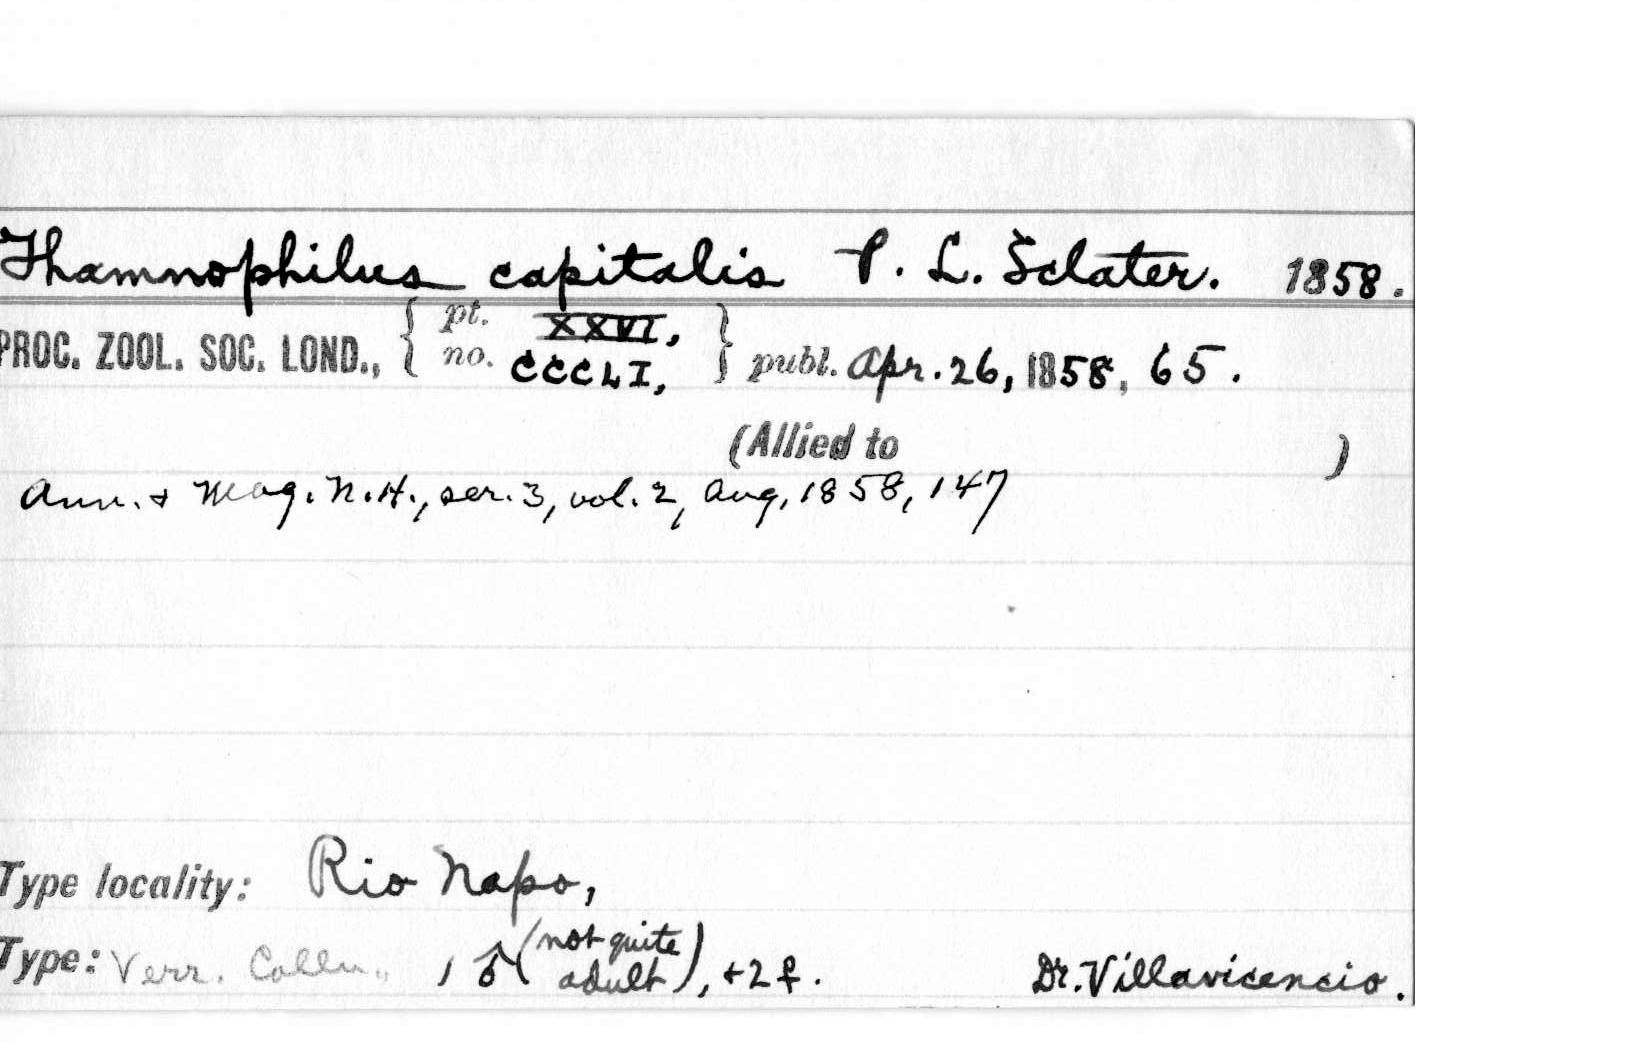 Thamnophilus capitalis P. L. Sclater. 1858.
PROC. ZOOL. SOC. LOND., { pt. XXVI, no. CCCLI, } publ. Apr. 26, 1858, 65.
(Allied to )
Ann. & Mag. N.H., ser. 3, vol. 2, Aug, 1858, 147
Type locality: Rio Napo,
Type: Verr. Colln., 1 ♂ (not quite adult), + 2 ♀. Dr. Villavicencio.